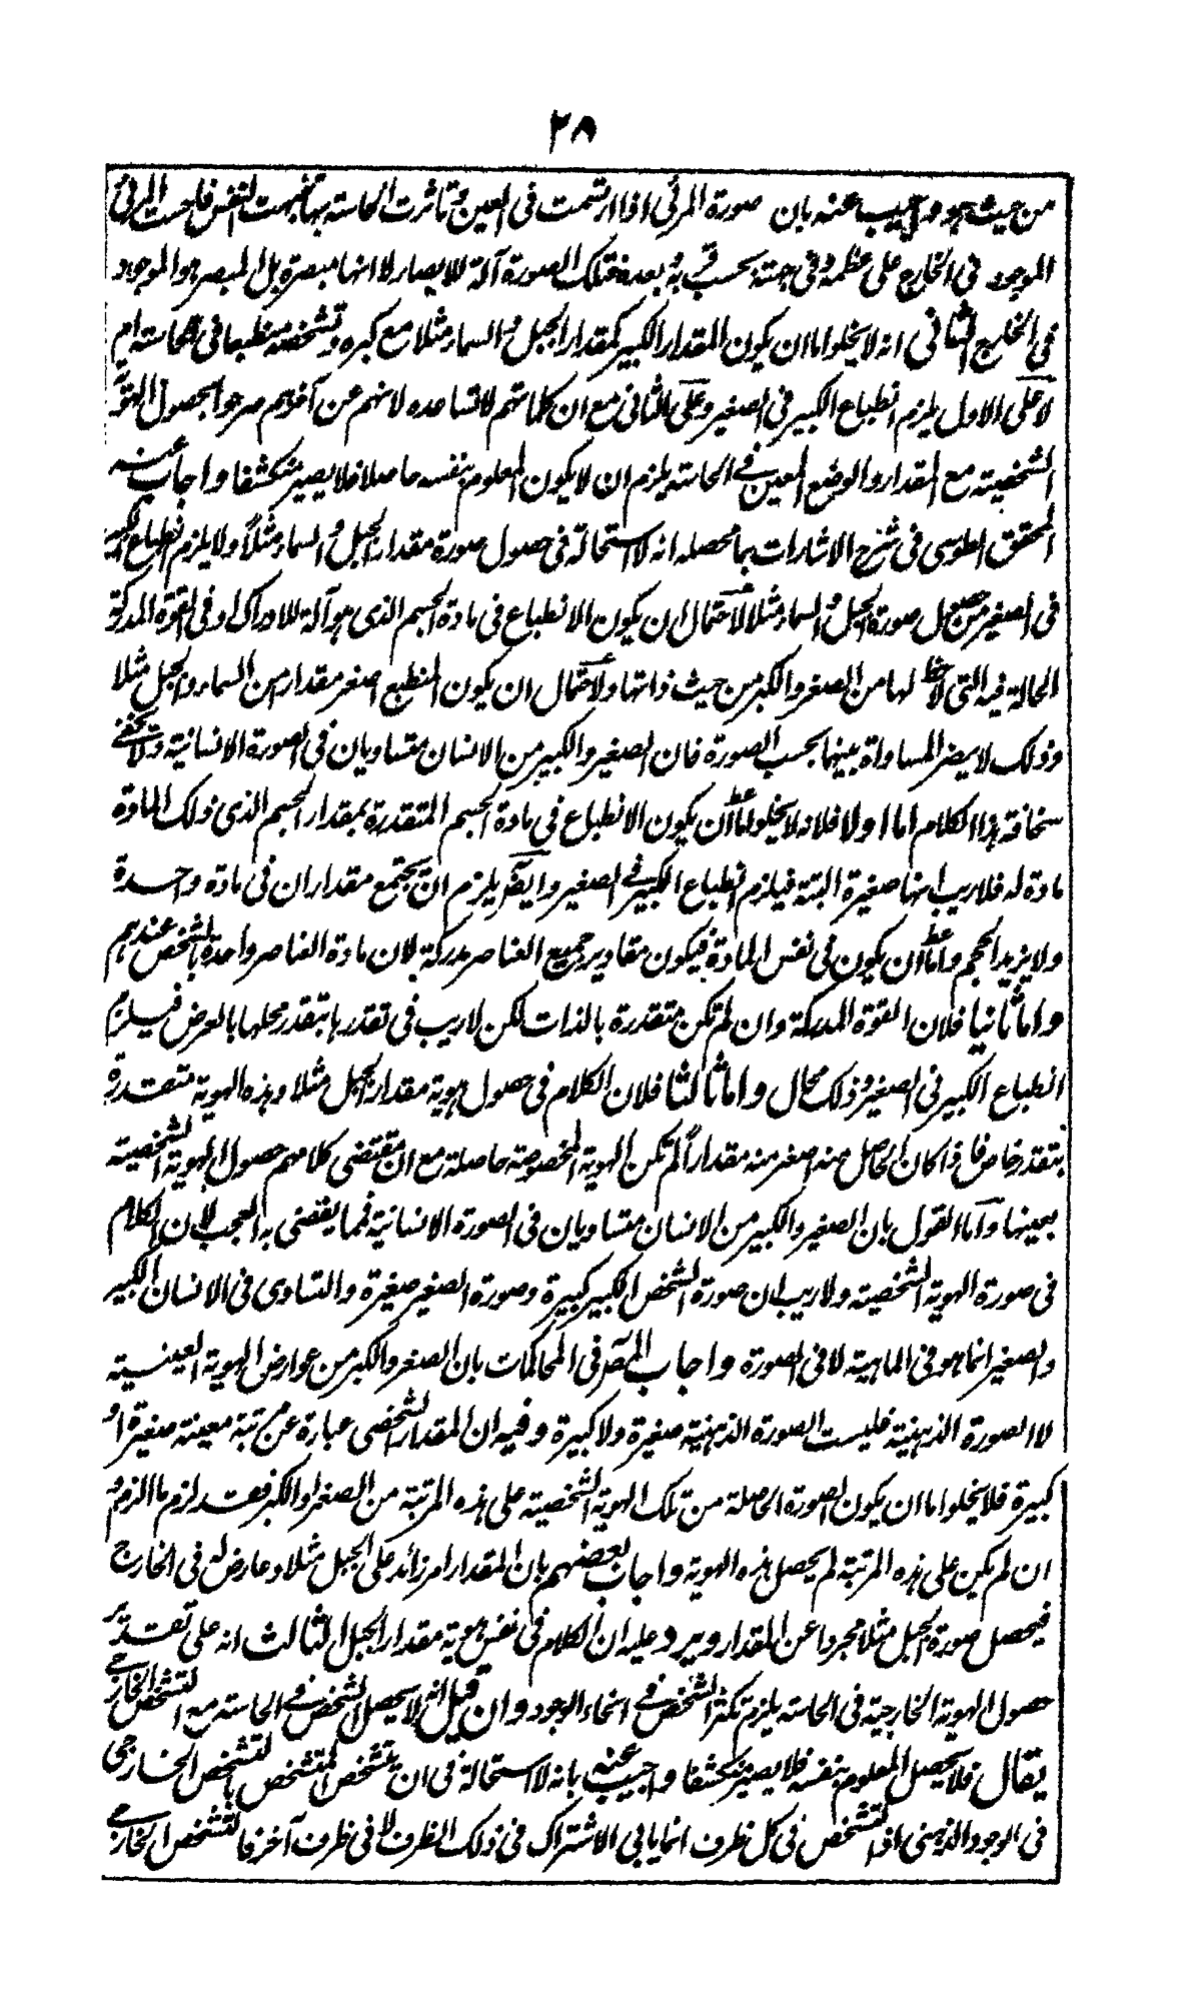 ٢٨
من حيث هو هو واجيب عنه بان صورة المرئي اذا ارتسمت في العين وتاثرت الحاسة بها تنبهت النفس فلحت المرئي
الموجود في الخارج على عظمه وفي جهته بحسب قربه وبعده فتلك الصورة آلة للابصار لا انها مبصرة بل المبصر هو الموجود
في الخارج الثاني انه لا يخلو اما ان يكون المقدار الكبير كمقدار الجبل والسماء مثلا مع كبره وتشخصه منطبعا في الحاسة ام
لا فعلى الاول يلزم انطباع الكبير في الصغير وعلى الثاني مع ان كلماتهم لا تساعده لانهم عن آخرهم صرحوا بحصول الهوية
الشخصية مع المقدار والوضع المعين في الحاسة يلزم ان لا يكون المعلوم بنفسه حاصلا فلا يصير منكشفا واجاب عنه
المحقق الطوسي في شرح الاشارات بما محصله انه لا استحالة في حصول صورة مقدار الجبل والسماء مثلاً ولا يلزم انطباع الكبير
في الصغير من حصول صورة الجبل والسماء مثلا لاحتمال ان يكون الانطباع في مادة الجسم الذي هو آلة للادراك او في القوة المدركة
الحالة فيه التي لا حظ لها من الصغر والكبر من حيث ذاتها ولاحتمال ان يكون المنطبع اصغر مقدارا من السماء والجبل مثلا
وذلك لا يضر المساواة بينهما بحسب الصورة فان الصغير والكبير من الانسان متساويان في الصورة الانسانية ولا يخفى
سخافة هذا الكلام اما اولا فلانه لا يخلو اما ان يكون الانطباع في مادة الجسم المتقدرة بمقدار الجسم الذي ذلك المادة
مادة له فلا ريب انها صغيرة البتة فيلزم انطباع الكبير في الصغير وايضا يلزم ان يجتمع مقداران في مادة واحدة
ولا يزيد الحجم واما ان يكون في نفس المادة فيكون مقادير جميع العناصر مدركة لان مادة العناصر واحدة بالشخص عندهم
واما ثانيا فلان القوة المدركة وان لم تكن متقدرة بالذات لكن لا ريب في تقدرها بتقدر محلها بالعرض فيلزم
انطباع الكبير في الصغير وذلك محال واما ثالثا فلان الكلام في حصول هوية مقدار الجبل مثلا وهذه الهوية متقدرة
بتقدر خاص فاذا كان الحاصل منه اصغر منه مقداراً لم تكن الهوية المخصوصة حاصلة مع ان مقتضى كلامهم حصول الهوية الشخصية
بعينها واما القول بان الصغير والكبير من الانسان متساويان في الصورة الانسانية فمما يقضى به العجب لان الكلام
في صورة الهوية الشخصية ولا ريب ان صورة الشخص الكبير كبيرة وصورة الصغير صغيرة والتساوي في الانسان الكبير
والصغير انما هو في الماهية لا في الصورة واجاب المص في المحاكمات بان الصغر والكبر من عوارض الهوية العينية
لا الصورة الذهنية فليست الصورة الذهنية صغيرة ولا كبيرة وفيه ان المقدار الشخصي عبارة عن مرتبة معينة صغيرة او
كبيرة فلا يخلو اما ان يكون الصورة الحاصلة من تلك الهوية الشخصية على هذه المرتبة من الصغر او الكبر فقد لزم ما الزم و
ان لم يكن على هذه المرتبة لم يحصل هذه الهوية واجاب بعضهم بان المقدار امر زائد على الجبل مثلا وعارض له في الخارج
فيحصل صورة الجبل مثلا مجردا عن المقدار ويرد عليه ان الكلام في نفس هوية مقدار الجبل الثالث انه على تقدير
حصول الهوية الخارجية في الحاسة يلزم تكثر الشخص في انحاء الوجود وان قيل انه لا يحصل الشخص في الحاسة مع التشخص الخارجي
يقال فلا يحصل المعلوم بنفسه فلا يصير منكشفا واجيب عنه بانه لا استحالة في ان يتشخص المتشخص بالتشخص الخارجي
في الوجود الذهني اذ التشخص في كل ظرف انما يابى الاشتراك في ذلك الظرف لا في ظرف آخر فالتشخص الخارجي